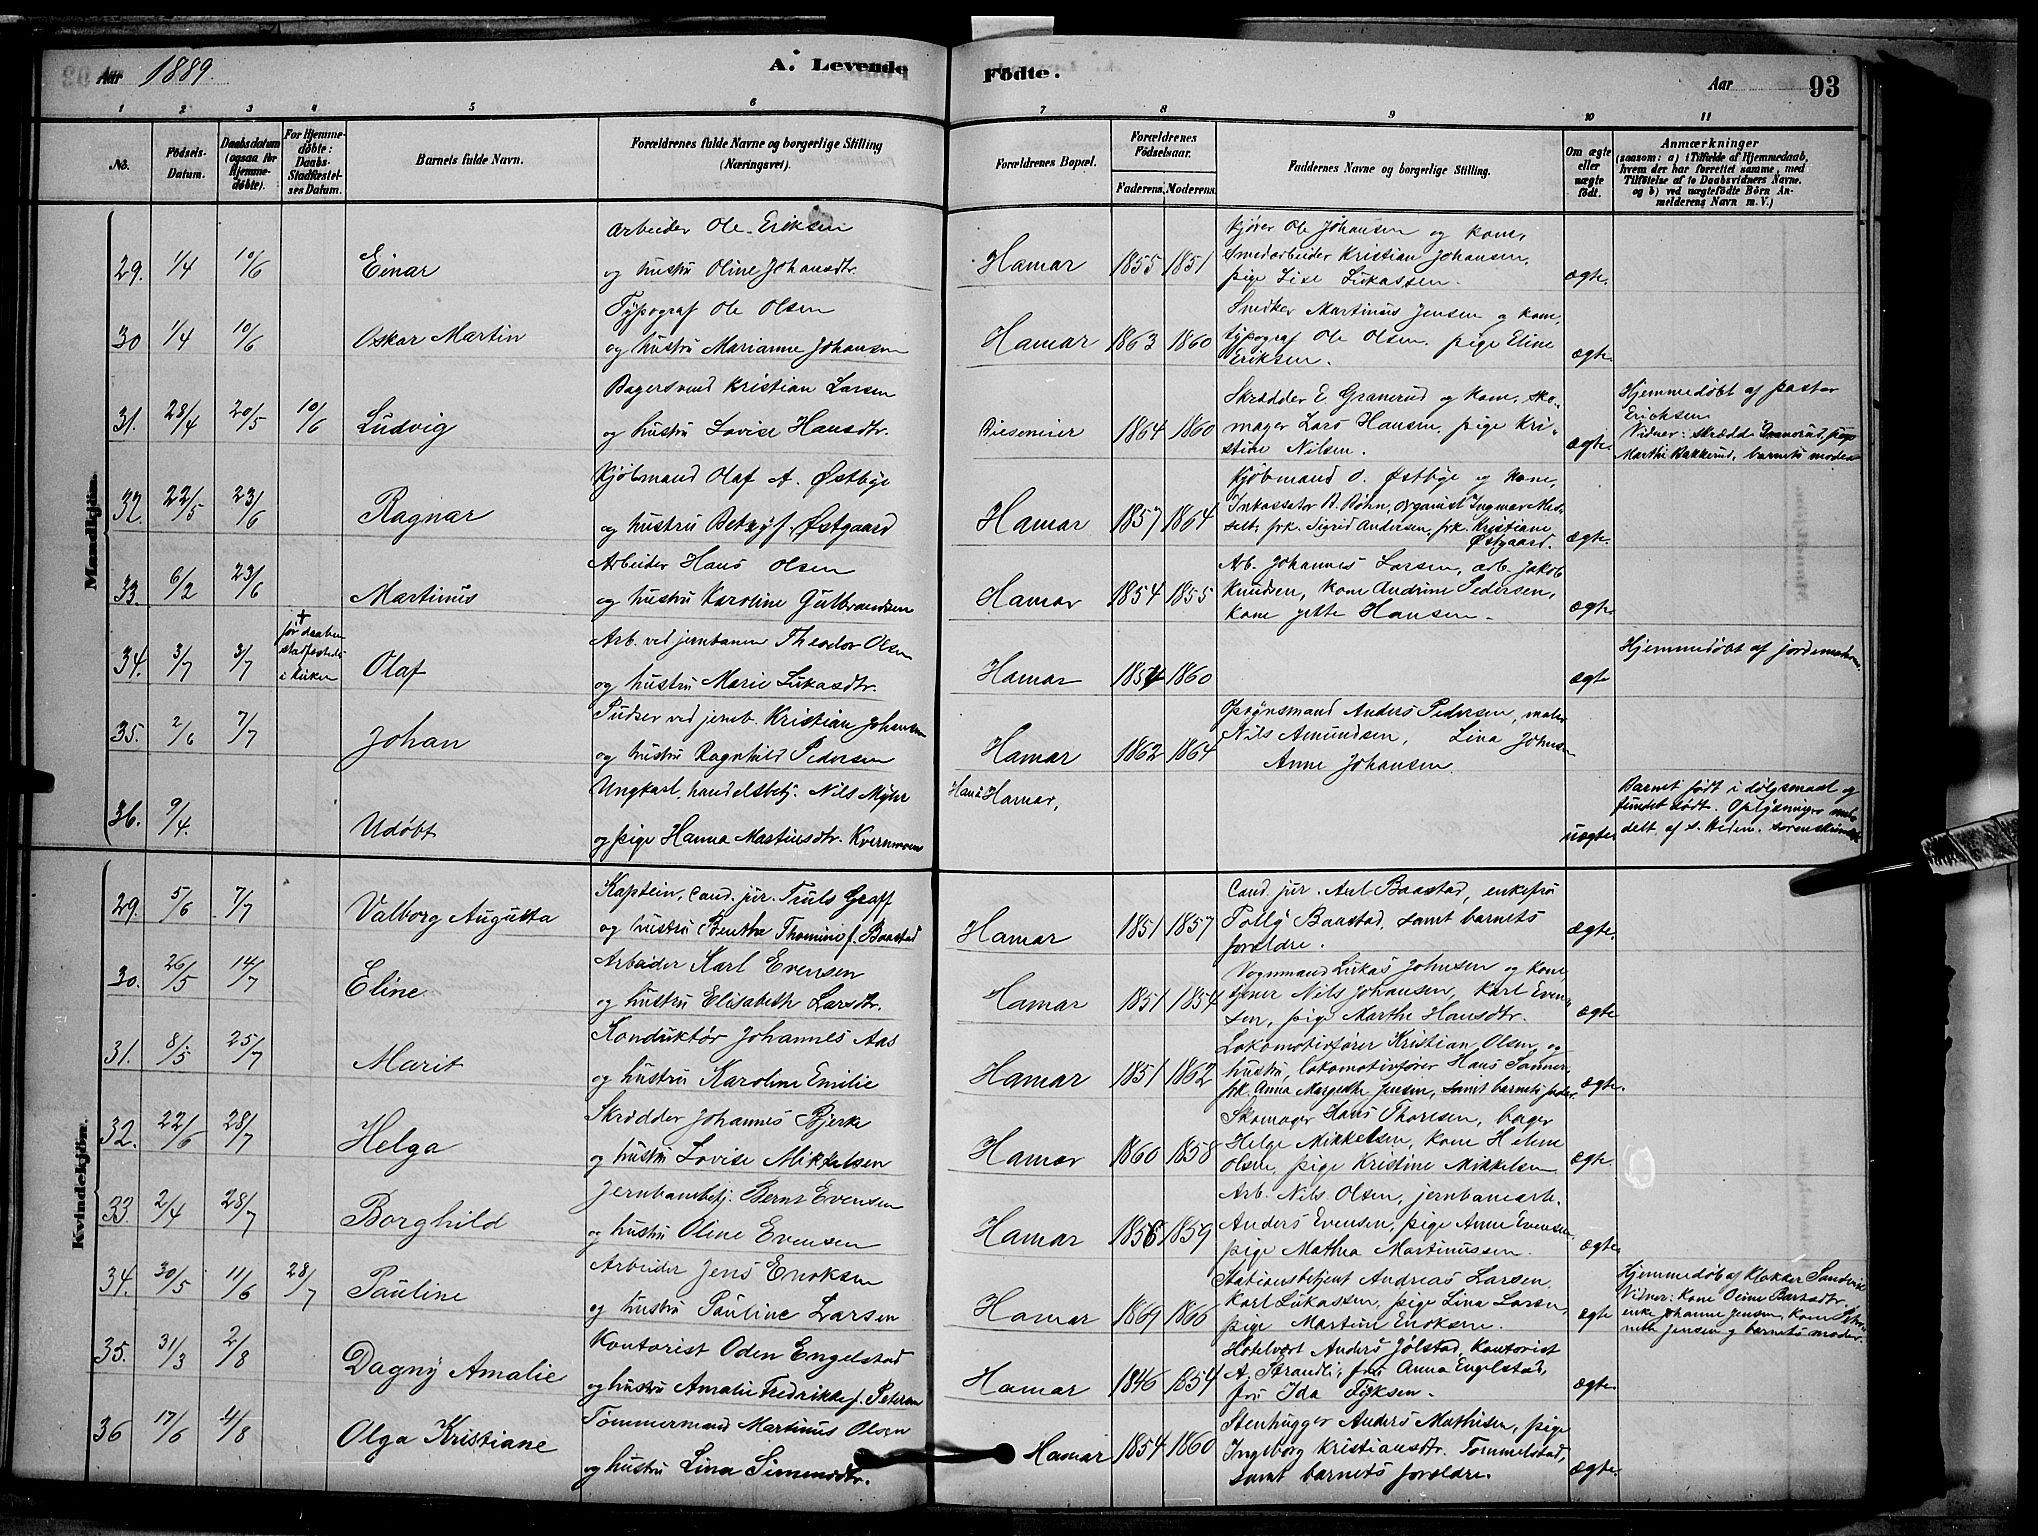 Aar 1889.
A. Levende Fødte.
Aar 93
1 2 3 4 5 6 7 8 9 10 11
No.
Fødsels-Datum.
Daabsdatum (ogsaa for Hjemmedøbte).
For Hjemmedøbte: Daabs-Stadfæstelses Datum.
Barnets fulde Navn.
Forældrenes fulde Navne og borgerlige Stilling (Næringsvei).
Forældrenes Bopæl.
Forældrenes Fødselsaar.
Faderens. Moderens.
Faddernes Navne og borgerlige Stilling.
Om ægte eller uægte født.
Anmærkninger
(saasom: a) i Tilfælde af Hjemmedaab, hvem der har forrettet samme, med Tilføielse af to Daabsvidners Navne, og b) ved uægtefødte Børn Anmelderens Navn m. V.)
Mandkjøn.
29. 1/4 10/6 Einar
Arbeider Ole Eriksen
og hustru Oline Johansdtr.
Hamar 1855 1851
Kjører Ole Johansen og kone,
Smedarbeider Kristian Johansen,
pige Lise Lukassen.
ægte.
30 1/4 10/6 Oskar Martin
Typograf Ole Olsen
og hustru Marianne Johansen
Hamar 1863 1860
Snedker Martinus Jensen og kone,
typograf Ole Olsen, pige Eline
Eriksen.
ægte.
31. 28/4 20/5 10/6 Ludvig
Bagersvend Kristian Larsen
og hustru Lovise Hansdtr.
1864 1860
Skrædder E Granerud og kone, sko-
mager Lars Hansen, pige Kri-
stine Nilsen.
ægte.
Hjemmedøbt af pastor
Erichsen
Vidner: skrædd. Granerud, pige
Marthe Bakkerud, barnets moder
32. 22/5 23/6 Ragnar
Kjøbmand Olaf A. Østbye
og hustru Betzy f. Østgaard
Hamar 1857 1864
Kjøbmand O. Østbye og kone,
Inkassator B. Bøhn, organist Ingmar Med-
, frk. Sigrid Andersen, frk. Kristiane
Østgaard.
ægte.
33. 6/2 23/6 Martinus
Arbeider Hans Olsen
og hustru Karoline Gulbrandsen
Hamar 1854 1855
Arb. Johannes Larsen, arb. Jakob
Knudsen, kone Andrine Pedersen,
kone Jette Hansen.
ægte
34. 3/7 3/7
+
før daaben
stadfæstedes
i kirken
Olaf
Arb. ved jernbanen Theodor Olsen
og hustru Marie Lukasdtr.
Hamar 1854 1860
ægte
Hjemmedøbt af jordemoderen
35. 2/6 7/7 Johan
Pudser ved jernb. Kristian Johansen
og hustru Ragnhild Pedersen
Hamar 1862 1864
Opsynsmand Anders Pedersen, maler
Nils Amundsen, Lina Johnsen
Anne Johansen.
36. 9/4. Udøbt
Ungkarl, handelsbetj. Nils Myhr
og pige Hanna Martinsdtr. Kvernmoen
Hamar,
uægte
Barnet født i dølgsmaal og
fundet dødt. Oplysninger med-
delt af s. Heden. sorenskriver
Kvindekjøn.
29. 5/6 7/7 Valborg Augusta
Kaptein, cand. jur. Truls Graff
og hustru Benthe Thomine f. Baastad
Hamar 1851 1857
Cand. jur. Axl Baastad, enkefru
Polly Baastad, samt barnets
forældre.
ægte.
30. 26/5 14/7 Eline
Arbeider Karl Evensen
og hustru Elisabeth Larsdtr.
Hamar 1851 1854
Vognmand Lukas Johnsen og kone
tjener Nils Johansen, Karl Even-
sen, pige Marthe Hansdtr.
ægte
31. 8/5 25/7 Marit
Konduktør Johannes Aas
og hustru Karoline Emilie
Hamar 1851 1862
Lokomotivfører Kristian Olsen og
hustru, lokomotivfører Hans Sanner,
frk. Anna Margrethe Jensen, samt barnets fader.
ægte.
32. 22/6 28/7 Helga
Skrædder Johannes Bjerke
og hustru Lovise Mikkelsen
Hamar 1860 1858
Skomager Hans Thoresen, bager
Helge Mikkelsen, kone Helene
Olsen, pige Kristine Mikkelsen
ægte.
33. 2/4 28/7 Borghild
Jernbanebetj. Bernt Evensen
og hustru Oline Evensen
Hamar 1856 1859
Arb. Nils Olsen, jernbanearb.
Anders Evensen, pige Anne Evensen,
pige Mathea Martinussen.
ægte
34. 30/5 11/6 28/7 Pauline
Arbeider Jens Enoksen
og hustru Pauline Larsen
Hamar 1869 1866
Stationsbetjent Andreas Larsen,
Karl Lukassen, pige Lina Larsen,
pige Martine Enoksen.
ægte
Hjemmedøbt af klokker Sandvik
Vidner: kone Oline
enke Johanne Jensen, kone
Jensen og barnets moder.
35. 31/3 2/8 Dagny Amalie
Kontorist Oden Engelstad
og hustru Amalie Fredrikke f. Petersen
Hamar 1846 1854
Hotelvært Anders Jølstad, kontorist
A. Strandli, fru Anna Engelstad,
fru Ida Fyksen.
ægte.
36 17/6 4/8 Olga Kristiane
Tømmermand Martinus Olsen
og hustru Lina Simensdtr.
Hamar 1854 1860
Stenhugger Anders Mathisen, pige
Ingeborg Kristiansdtr. Tommelstad,
samt barnets forældre.
ægte.